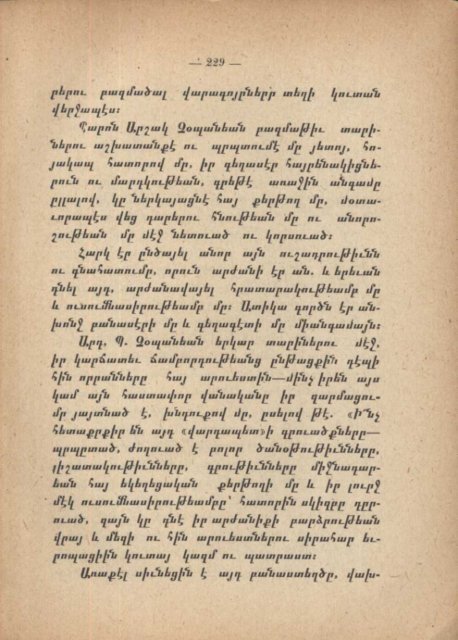 — 229 —
րերու բազմածալ վարագոյրներր տեղի կուտան
վերջապէս:
Պարոն Արշակ Չօպանեան բազմաթիւ տարի-
ներու աշխատանքէ ու պրպտումէ մը յետոյ, հո-
յակապ հատորով մը, իր գեղասէր հայրենակիցնե-
րուն ու մարդկութեան, գրեթէ առաջին անգամը
ըլլալով, կը ներկայացնէ հայ քերթող մը, մօտա-
ւորապէս վեց դարերու հնութեան մը ու անորո-
շութեան մը մէջ նետուած ու կորսուած:
Հարկ էր ընծայել անոր այն ուշադրութիւնն
ու գնահատումը, որուն արժանի էր ան. և երեւան
դնել այդ, արժանավայել հրատարակութեամբ մը
և ուսումնասիրութեամբ մը: Ատիկա գործն էր ան-
խոնջ բանասէրի մը և գեղագէտի մը միանգամայն:
Արդ, Պ. Չօպանեան երկար տարիներու մէջ,
իր կարճատեւ ճամբորդութեանց ընթացքին դէպի
հին որրանները հայ արուեստին—մինչ իրեն այս
կամ այն հաստափոր վանականը իր զարմացու-
մը յայտնած է, խնդուքով մը, ըսելով թէ. «Ի՞նչ
հետաքրքիր են այդ «վարդապետ»ի գրուածքները—
պրպրտած, ժողուած է բոլոր ծանօթութիւնները,
յիշատակութիւնները, գրութիւնները միջնադար-
եան հայ եկեղեցական քերթողի մը և իր լուրջ
մէկ ուսումնասիրութեամբը՝ հատորին սկիզբը դըր-
ուած, զայն կը դնէ իր արժանիքի բարձրութեան
վրայ և մեզի ու հին արուեստներու սիրահար եւ-
րոպացիին կուտայ կազմ ու պատրաստ:
Առաքէլ սիւնեցին է այդ բանաստեղծը, վախ-